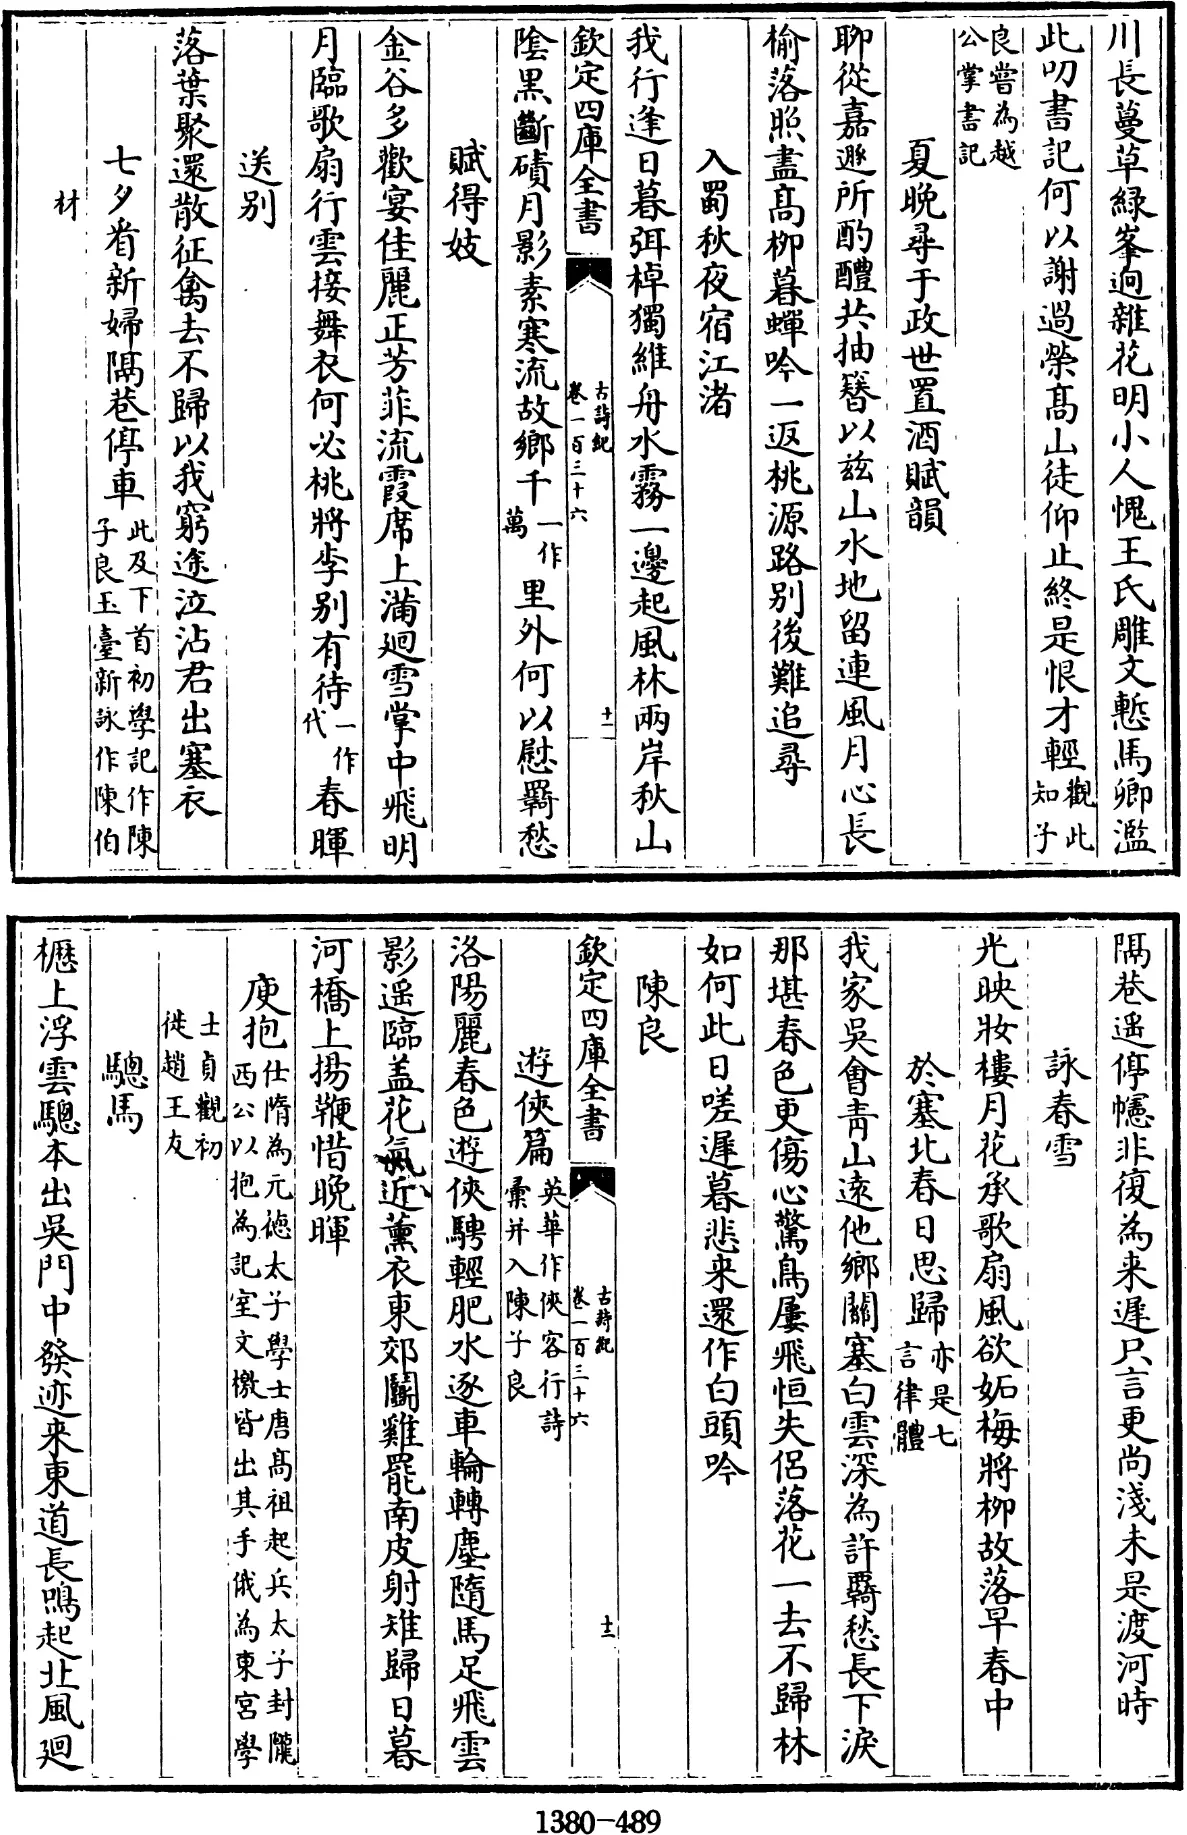 川長蔓草緑峯迥雜花明小人愧王氏雕文慙馬卿濫
此叨書記何以謝過榮髙山徒仰止終是恨才輕觀此知子
良嘗為越公掌書記
夏晩尋于政世置酒賦韻
聊從嘉遯所酌醴共抽簪以兹山水地留連風月心長
榆落照盡髙柳暮蟬吟一返桃源路别後難追尋
入蜀秋夜宿江渚
我行逢日暮弭棹獨維舟水霧一邊起風林兩岸秋山
欽定四庫全書
古詩紀
卷一百三十六
十一
陰黒斷磧月影素寒流故鄉千一作萬里外何以慰羇愁
賦得妓
金谷多歡宴佳麗正芳菲流霞席上滿廻雪掌中飛明
月臨歌扇行雲接舞衣何必桃將李别有待一作代春暉
送别
落葉聚還散征禽去不歸以我窮途泣沾君出塞衣
七夕㸔新婦隔巷停車此及下首初學記作陳子良玉臺新詠作陳伯
材
隔巷遥停幰非復為来遲只言更尚淺未是渡河時
詠春雪
光映妝樓月花承歌扇風欲妬梅將柳故落早春中
於塞北春日思歸亦是七言律體
我家吳會青山逺他鄉關塞白雲深為許羇愁長下淚
那堪春色更傷心驚鳥屢飛恒失侣落花一去不歸林
如何此日嗟遲暮悲来還作白頭吟
陳良
欽定四庫全書
古詩紀
卷一百三十六
十二
遊俠篇英華作俠客行詩彚并入陳子良
洛陽麗春色遊俠騁輕肥水逐車輪轉塵隨馬足飛雲
影遥臨盖花氣近薰衣東郊鬭雞罷南皮射雉歸日暮
河橋上揚鞭惜晩暉
庾抱仕隋為元徳太子學士唐髙祖起兵太子封隴西公以抱為記室文檄皆出其手俄為東宮學
士貞觀初徙趙王友
驄馬
櫪上浮雲驄本出吳門中發迹来東道長鳴起北風廻
1380-489